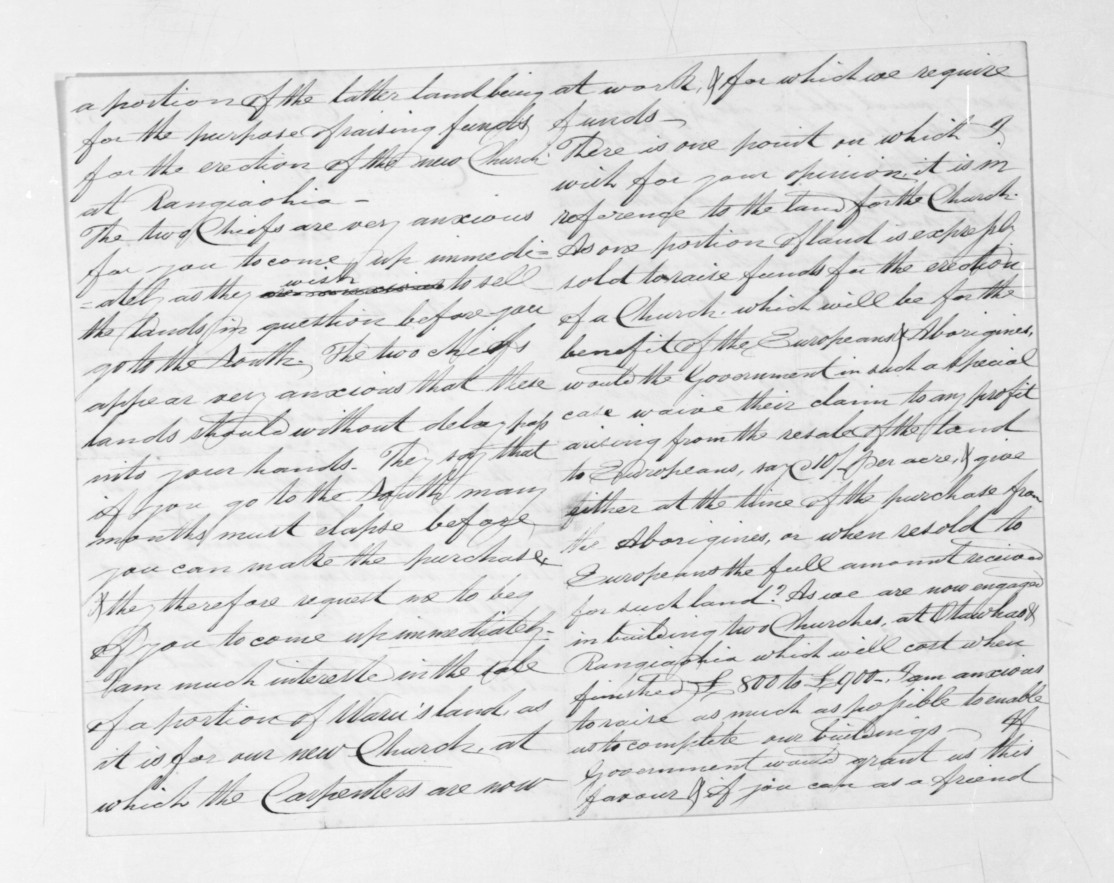 a portion of the latter land being
for the purpose of raising funds
for the erection of the new Church
at Rangiaohia -
The two Chiefs are very anxious
for you to come up immedi=
-ately as they wish to sell
the lands in question before you
go to the South. The two chiefs
appear very anxious that these
lands should without delay pass
into your hands. They say that
if you go to the South many
months must elapse before
you can make the purchase
& they therefore request me to beg
of you to come up immediately-
I am much intereste in the sale
of a portion of Waru's land, as
it is for our new Church, at
which the Carpenters are now
at work, & for which we require
funds -
There is one point on which I
wish for your opinion, it is in
reference to the land for the Church.
As one portion of land is expressly
sold to raise funds for the erection
of a Church. which will be for the
benefit of the Europeans & Aborigines,
would the Government in such a special
case waive their claim to any profit
arising from the resale of the land
to Europeans, say 10/- per acre, & give
either at the time of the purchase from
the Aborigines, or when resold to
Europeans the full amount received
for such land? As we are now engaged
in building two Churches, at Otawhao &
Rangiaohia which will cost when
finished £800 to £900-. I am anxious
to raise as much as possible to enable
us to complete our buildings If
Government would grant us this
favour & if you can as a friend